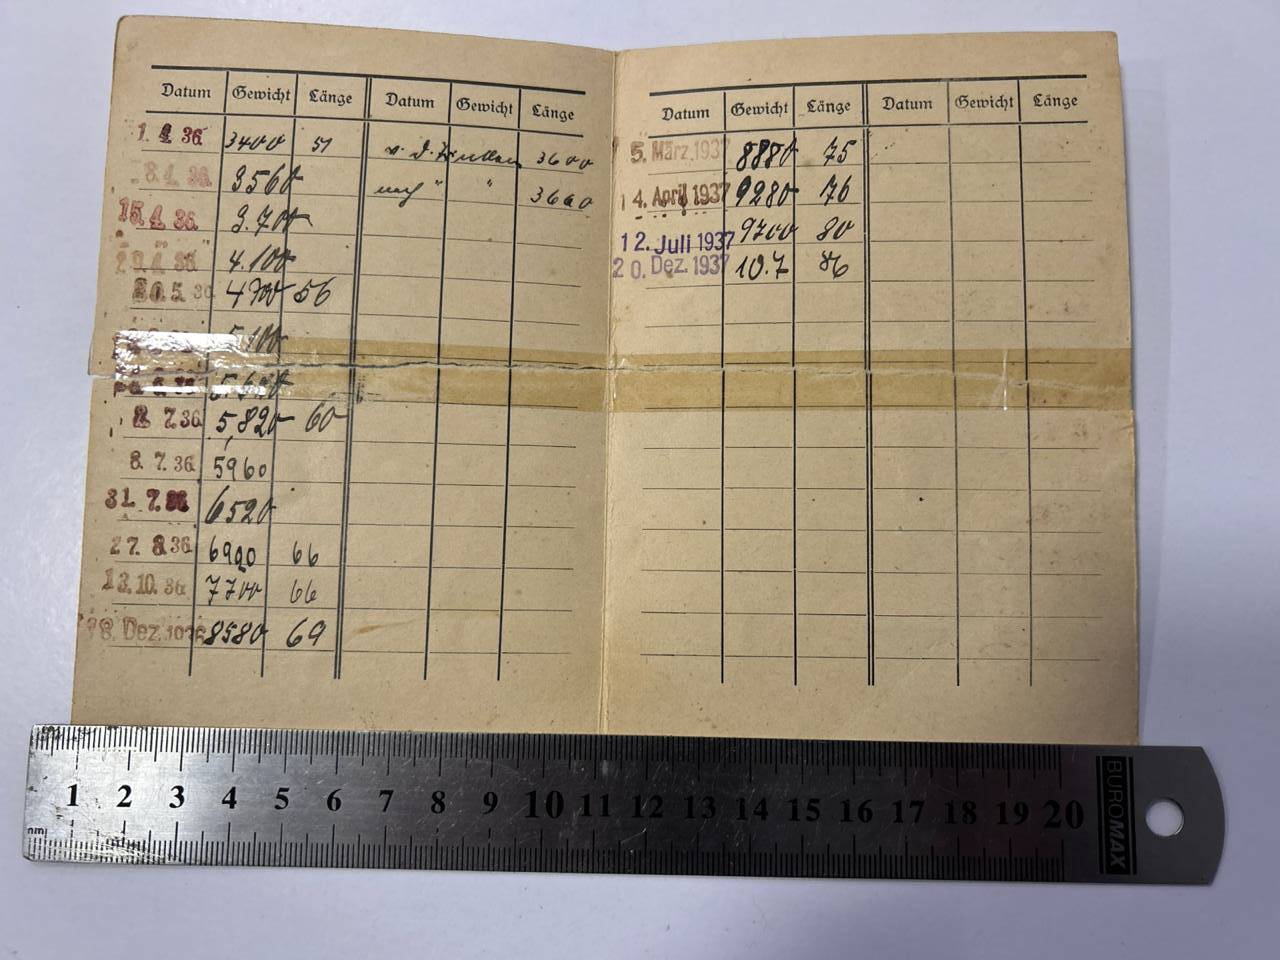 Datum Gewicht Länge Datum Gewicht Länge
1. 4. 36. 3400 51 v. d. 3600
8. 4. 36. 3560 nach " " 3660
15. 4. 36. 3.700
4.100
30. 5. 36 4700 56
5,100
8. 7. 36 5,820 60
8. 7. 36. 5960
31. 7. 36 6520
27. 8. 36 6900 66
13. 10. 36 7700 66
8. Dez. 1936 8580 69
Datum Gewicht Länge Datum Gewicht Länge
5. März. 1937 8880 75
14. April 1937 9280 76
12. Juli 1937 9700 80
20. Dez. 1937 10.7 86
1 2 3 4 5 6 7 8 9 10 11 12 13 14 15 16 17 18 19 20
BUROMAX